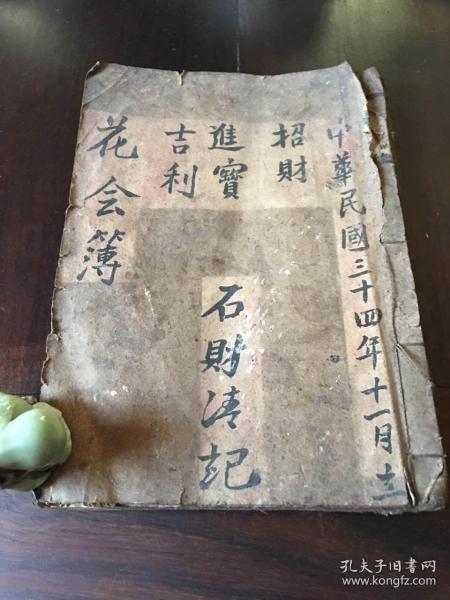 中華民國三十四年十一月立
招財
進寶
吉利
石財清記
花会簿
孔夫子旧书网
www.kongfz.com